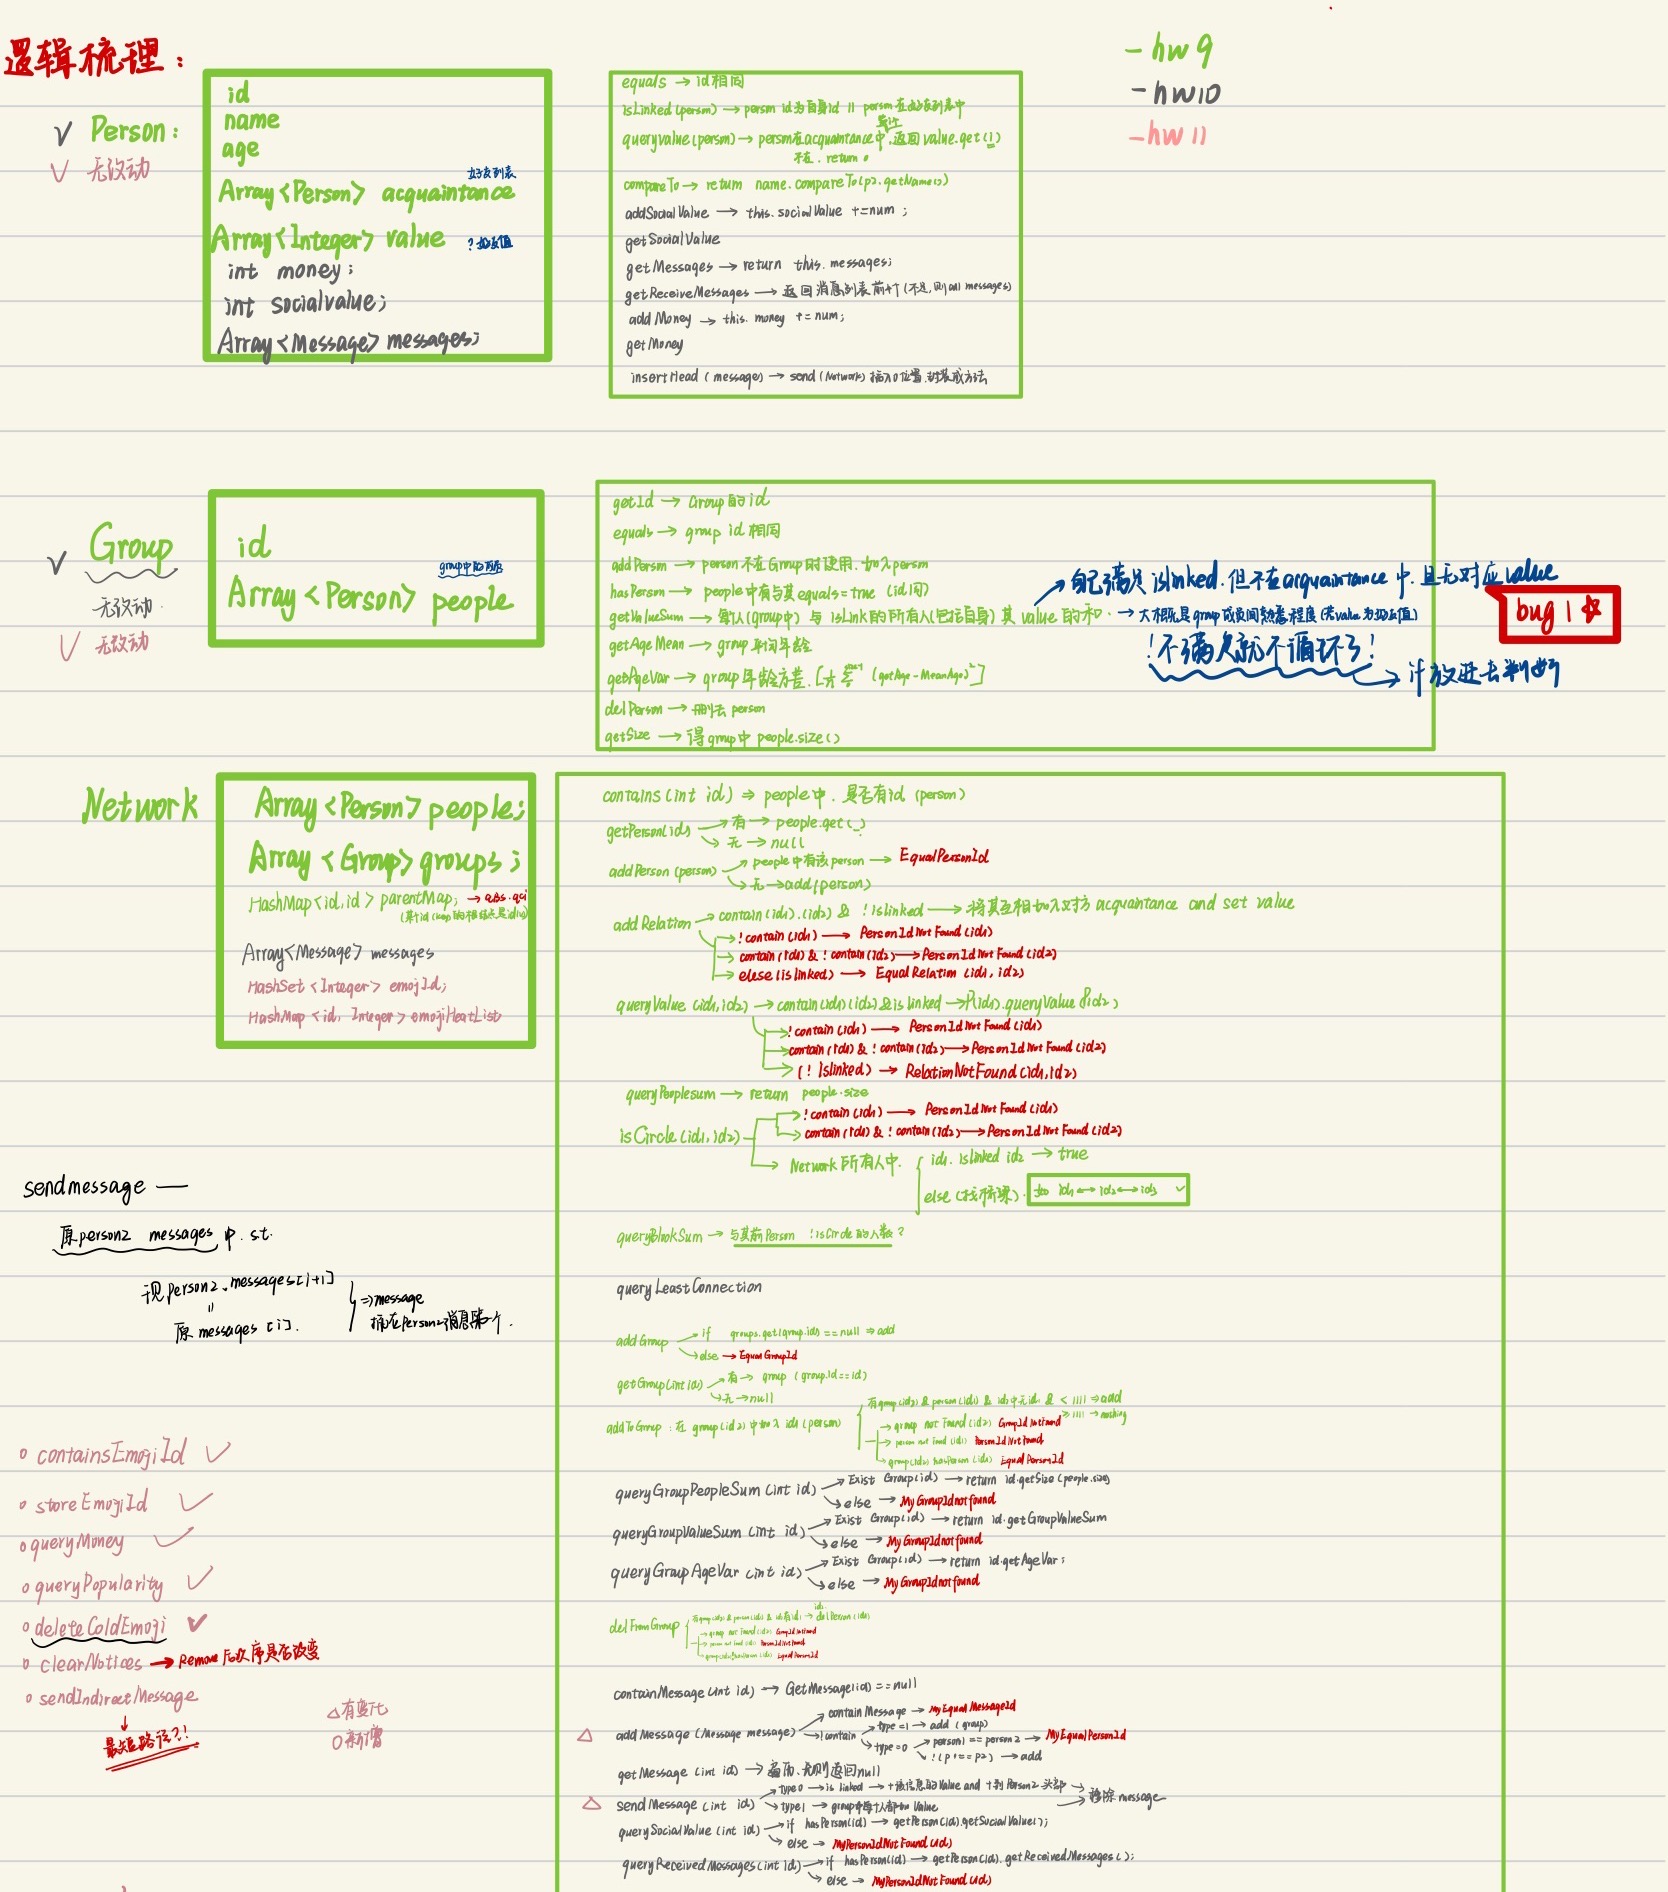 逻辑梳理：
- hw 9
- hw10
- hw 11
✓ Person：
✓ 无改动
id
name
age
Array<Person> acquaintance 好友列表
Array<Integer> value ?好友值
int money;
int socialvalue;
Array<Message> messages;
equals → id相同
isLinked(person) → person id为自身id || person在好友列表中
queryvalue(person) → person在acquaintance中,返回value.get(i)
不在. return 0
compareTo → return name.compareTo(p2.getName())
addSocialValue → this.socialValue +=num ;
getSocialValue
getMessages → return this.messages;
getReceiveMessages → 返回消息列表前4个(不足,则all messages)
addMoney → this.money += num;
getMoney
insertHead (message) → send(Network) 插入0位置,封装成方法
✓ Group
无改动
✓ 无改动
id
Array<Person> people group中的
getId → Group的id
equals → group id相同
addPerson → person不在Group时使用.加入person
hasPerson → people中有与其equals=true (id同)
getValueSum → 每人(group中) 与 isLink的所有人(包括自身) 其 value的和. → 大概就是group成员间熟悉程度(若value为好友值)
自己满足islinked.但不在acquaintance中.且无对应value
bug 1 ☆
!不满足就不循环了!
→ 放进去判断
getAgeMean → group平均年龄
getAgeVar → group年龄方差. (getAge-MeanAge)²
delPerson → 删去person
getSize → 得group中people.size()
Network
Array<Person> people;
Array<Group> groups;
HashMap<id,id> parentMap; → qbs.qci
Array<Message> messages
HashSet<Integer> emojiId;
HashMap<id, Integer> emojiHeatList
contains(int id) ⇒ people中.是否有id (person)
getPerson(id) → 有 → people.get(_)
→ 无 → null
addPerson(person) → people中有该person → EqualPersonId
→ 无 → add(person)
addRelation → contain(id1).(id2) & !islinked → 将其互相加入对方acquaintance and set value
→ !contain(id1) → PersonIdNotFound(id1)
→ contain(id1) & !contain(id2) → PersonIdNotFound(id2)
→ elese(islinked) → EqualRelation(id1, id2)
queryValue(id1,id2) → contain(id1)(id2)&islinked → P(id1).queryValue P(id2)
→ !contain(id1) → PersonIdNotFound(id1)
→ contain(id1) & !contain(id2) → PersonIdNotFound(id2)
→ (!islinked) → RelationNotFound(id1,id2)
queryPeoplesum → return people.size
→ !contain(id1) → PersonIdNotFound(id1)
isCircle(id1,id2) → contain(id1) & !contain(id2) → PersonIdNotFound(id2)
→ Network所有人中. id1.islinked id2 → true
else(找桥梁). 如 id1 ↔ id2 ↔ id3 ✓
queryBlockSum → 与其前Person !isCircle的人数?
queryLeastConnection
addGroup → if groups.get(group.id) == null ⇒ add
→ else → EqualGroupId
getGroup(int id) → 有 → group (group.id==id)
→ 无 → null
addToGroup : 在 group(id2)中加入 id1(person)
有group(id2) & person(id1) & id2中无id1 & < 1111 ⇒ add
≥1111 → nothing
→ group not found(id2) GroupIdNotFound
→ person not found(id1) PersonIdNotFound
→ group(id2) hasPerson(id1) EqualPersonId
queryGroupPeopleSum(int id) → Exist Group(id) → return id.getSize(people.size)
→ else → MyGroupIdnotfound
queryGroupValueSum(int id) → Exist Group(id) → return id.getGroupValueSum
→ else → MyGroupIdnotfound
queryGroupAgeVar(int id) → Exist Group(id) → return id.getAgeVar;
→ else → MyGroupIdnotfound
delFromGroup 有group(id2) & person(id1) & id2有id1 → id2.delPerson(id1)
→ group not found(id2) GroupIdNotFound
→ person not found(id1) PersonIdNotFound
→ EqualPersonId
containMessage(int id) → GetMessage(id)==null
△ addMessage(Message message) → contain Message → MyEqualMessageId
→ !contain → type=1 → add (group)
→ type=0 → person1 == person2 → MyEqualPersonId
→ !(p1==p2) → add
getMessage(int id) → 遍历.无则返回null
△ sendMessage(int id) → type0 → is linked → +该信息的Value and +到Person2头部 → 移除message
→ type1 → group中每个人都加Value
querySocialValue(int id) → if hasPerson(id) → getPerson(id).getSocialValue();
→ else → MyPersonIdNotFound(id)
queryReceivedMessages(int id) → if hasPerson(id) → getPerson(id).getReceivedMessages();
→ else → MyPersonIdNotFound(id)
sendmessage —
原person2 messages 中. s.t.
现person2.messages[i+1]
=
原 messages [i].
⇒ message
插在Person2消息第一个.
○ containsEmojiId ✓
○ storeEmojiId ✓
○ queryMoney ✓
○ queryPopularity ✓
○ deleteColdEmoji ✓
○ clearNotices → Remove后次序是否改变
○ sendIndirectMessage
↓
最短路径?!
△ 有变化
○ 新增